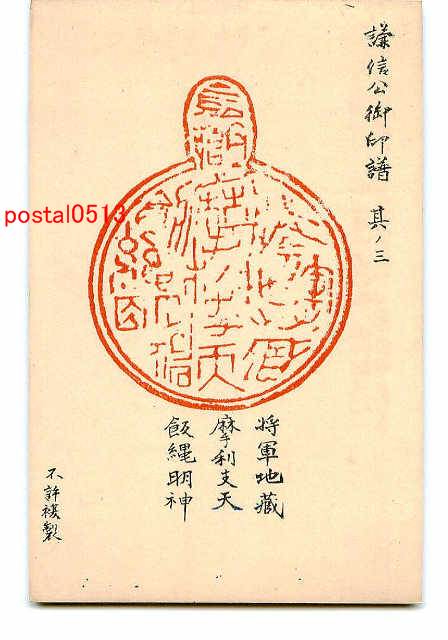 謙信公御印譜 其ノ三
将軍地蔵
摩利支天
飯縄明神
不許複製
postal0513